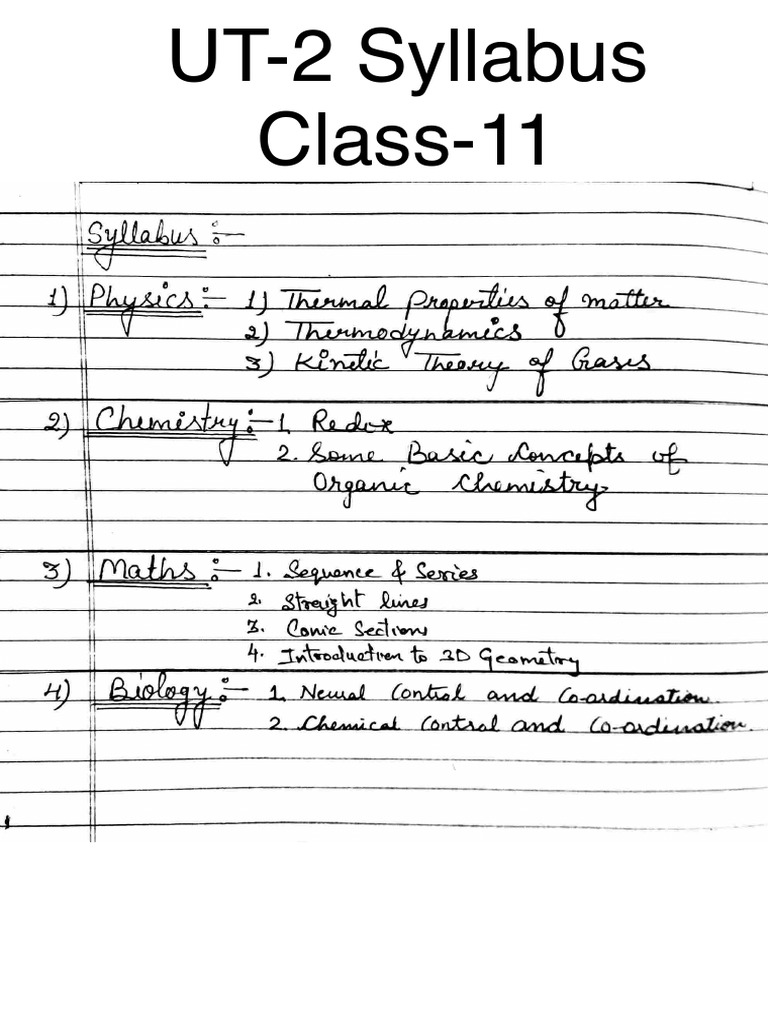 UT-2 Syllabus
Class-11
Syllabus :-
1) Physics :- 1) Thermal Properties of matter
2) Thermodynamics
3) Kinetic Theory of Gases
2) Chemistry :- 1. Redox
2. Some Basic Concepts of
Organic Chemistry
3) Maths :- 1. Sequence & Series
2. Straight lines
3. Conic Sections
4. Introduction to 3D Geometry
4) Biology :- 1. Neural Control and Co-ordination.
2. Chemical Control and Co-ordination.